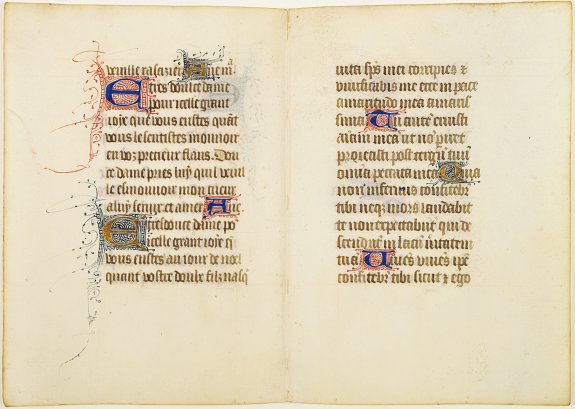 veuille rasazier Aue mᵃ
E tres doulce dame
pour icelle grant
ioye que vous eustes quāt
vous le sentistes mouuoir
en voz precieux flans. Dou
ce dame pries luy quil veul
le esmouuoir mon cueur
a luy seruir et amer Aue
E tresdouce dame po
icelle grant ioye q̄
vous eustes au iour de noel
quant vostre doulx filz nasq̄
uita sp̄s mei corripies &
uiuificabis me ecce in pace
amaritudo mea amaris
sima Tu autē eruisti
aīam meā ut nō piret
proiecisti post tergū tuū
oīa peccata mea Quia
non infernus confitebr̄
tibi neqȝ mors laudabit
te non expectabūt qui de
scendūt in lacū ūitatem
tuā Uiuēs uiuēs ipē
confitebr̄ tibi sicut & ego